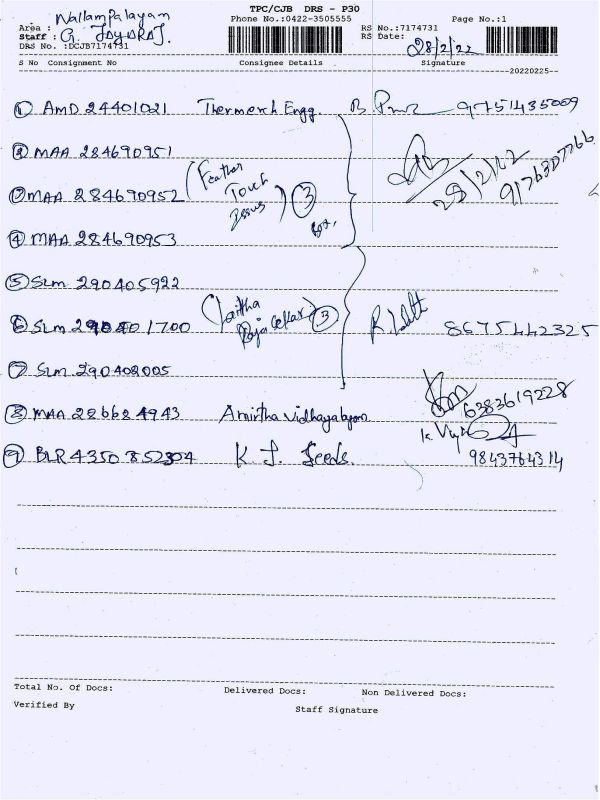 TPC/CJB DRS - P30
Area : Nallampalayam
Phone No.:0422-3505555
Page No.:1
Staff : G. JAYARAJ.
RS No.:7174731
DRS No. :DCJB7174731
RS Date: 28/2/22
S No Consignment No Consignee Details Signature
20220225
① AMD 24401021 Thermerch Engg 9751435009
② MAA 284690951
28/2/22 9176307766
③ MAA 284690952 (Feather Touch Issues) ③
④ MAA 284690953
⑤ SLM 290405922
⑥ SLM 290401700 ③ 8675442325
⑦ SLM 290408005
⑧ MAA 286684943 Amirtha Vidhayalayam 6383619228
⑨ BLR 4350852304 K J Seeds. 9843764314
Total No. Of Docs: Delivered Docs: Non Delivered Docs:
Verified By Staff Signature